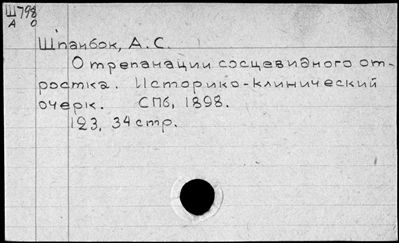 Ш798
А О
Шпанбок, А.С.
О трепанации сосцевидного от-
ростка. Историко-клинический
очерк. СПб, 1898.
123, 34 стр.